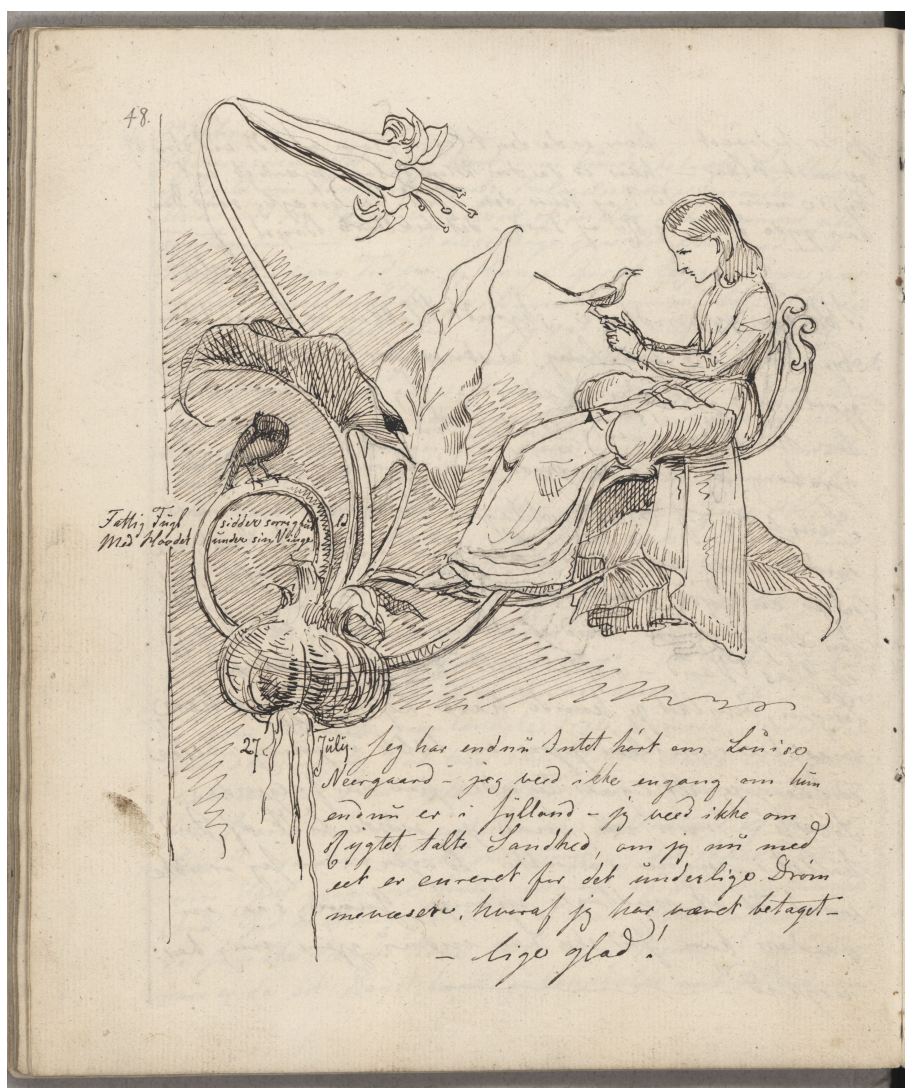 48.
Fattig Fugl sidder sorrigfuld
Med Hovdet under sin Vinge
27 July. Jeg har endnu Intet hørt om Louise
Neergaard – jeg veed ikke engang om hun
endnu er i Jylland – jeg veed ikke om
Rygtet talte Sandhed, om jeg nu med
eet er cureret for det underlige Drøm
mevæsen, hvoraf jeg har været betaget –
– lige glad!